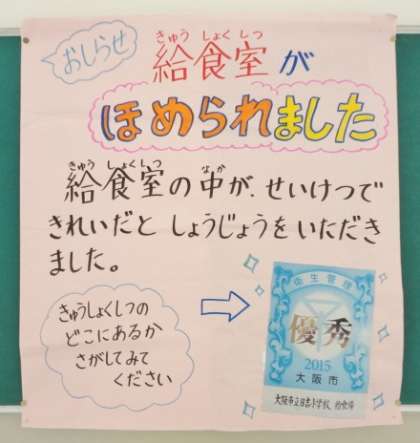 おしらせ
きゅう しょく しつ
給食室が
ほめられました
きゅう しょくしつ なか
給食室の中が、せいけつで
きれいだと しょうじょうをいただき
ました。
きゅうしょくしつの
どこにあるか
さがしてみて
ください
衛生管理
優秀
2015
大阪市